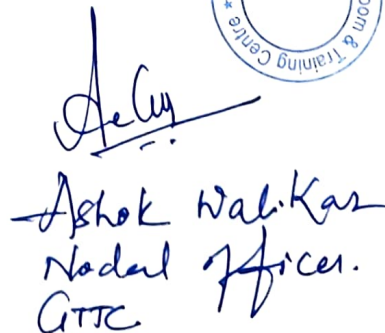 oom & Training Centre *
Ashok Walikar
Nodal Officer.
GTTC